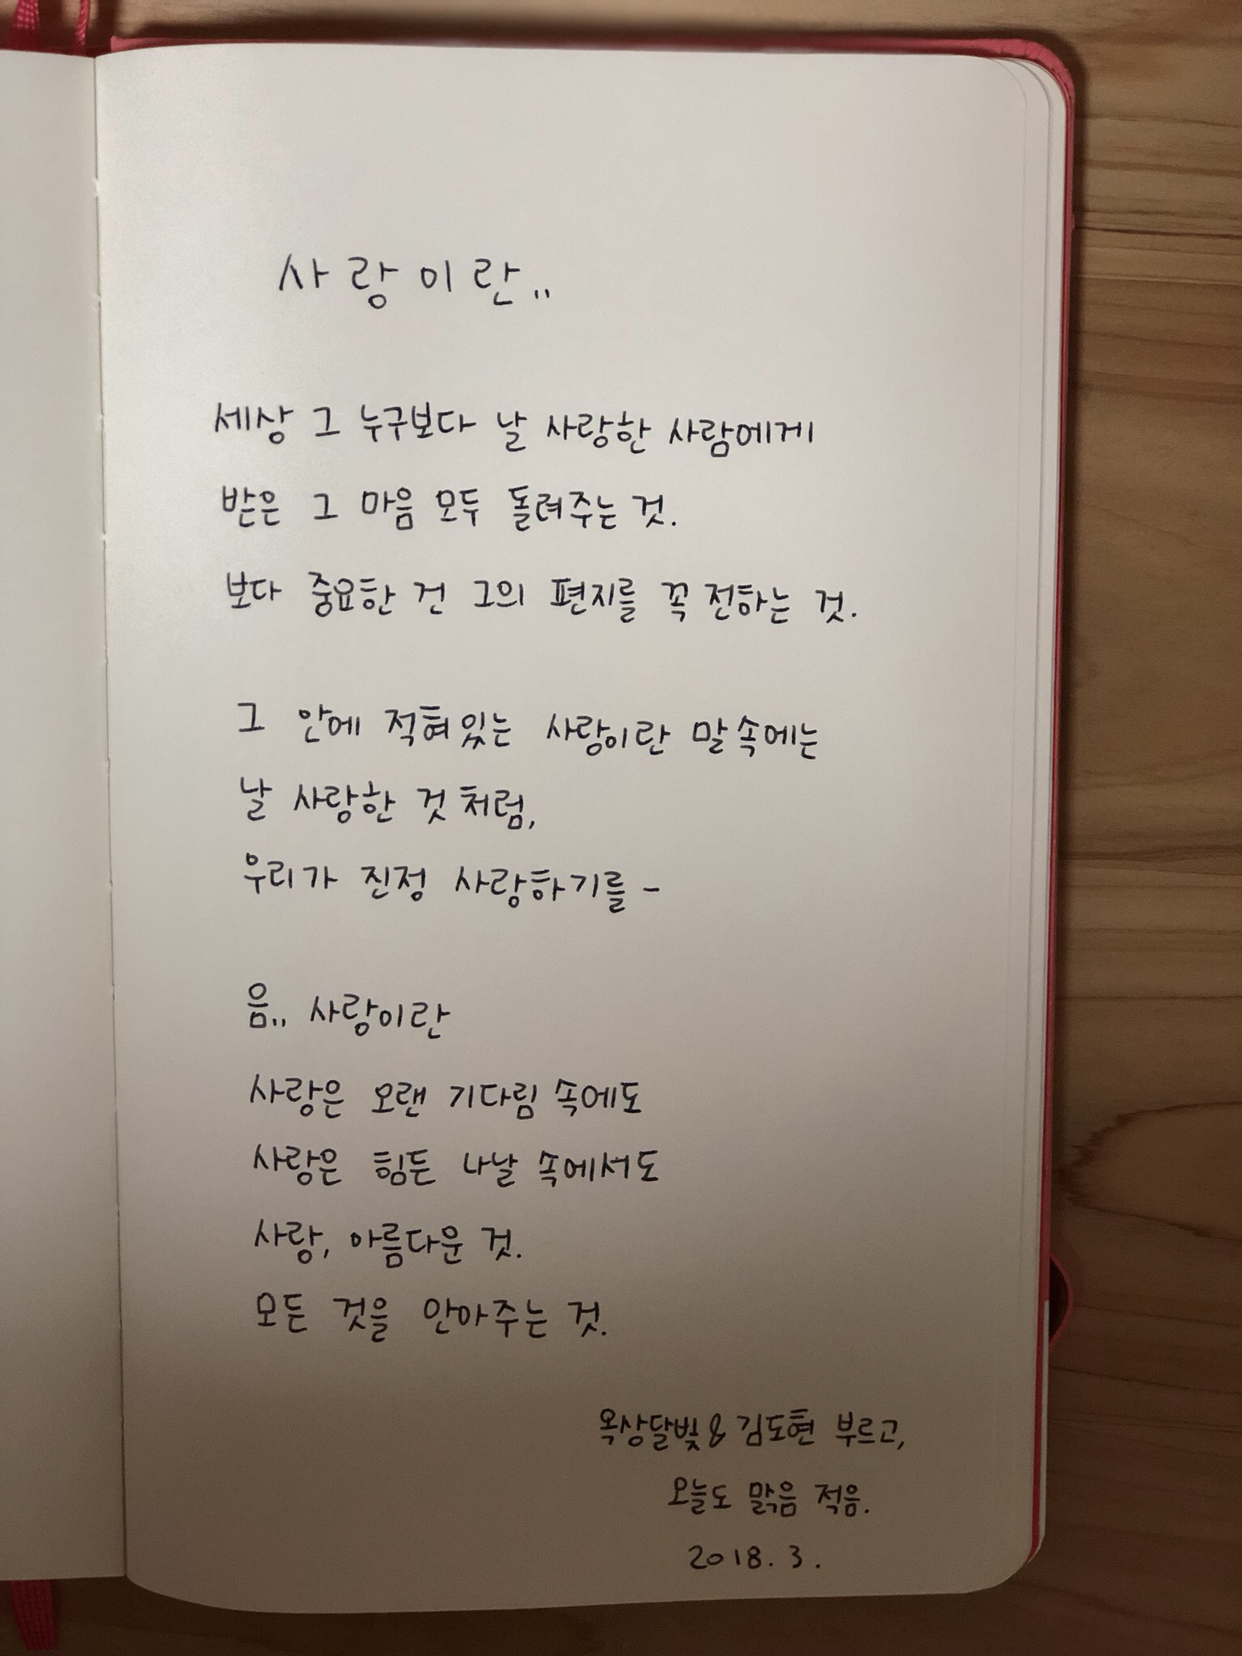 사랑이란..
세상 그 누구보다 날 사랑한 사람에게
받은 그 마음 모두 돌려주는 것.
보다 중요한 건 그의 편지를 꼭 전하는 것.
그 안에 적혀있는 사랑이란 말속에는
날 사랑한 것처럼,
우리가 진정 사랑하기를 -
음.. 사랑이란
사랑은 오랜 기다림 속에도
사랑은 힘든 나날 속에서도
사랑, 아름다운 것.
모든 것을 안아주는 것.
옥상달빛 & 김도현 부르고,
오늘도 맑음 적음.
2018. 3.